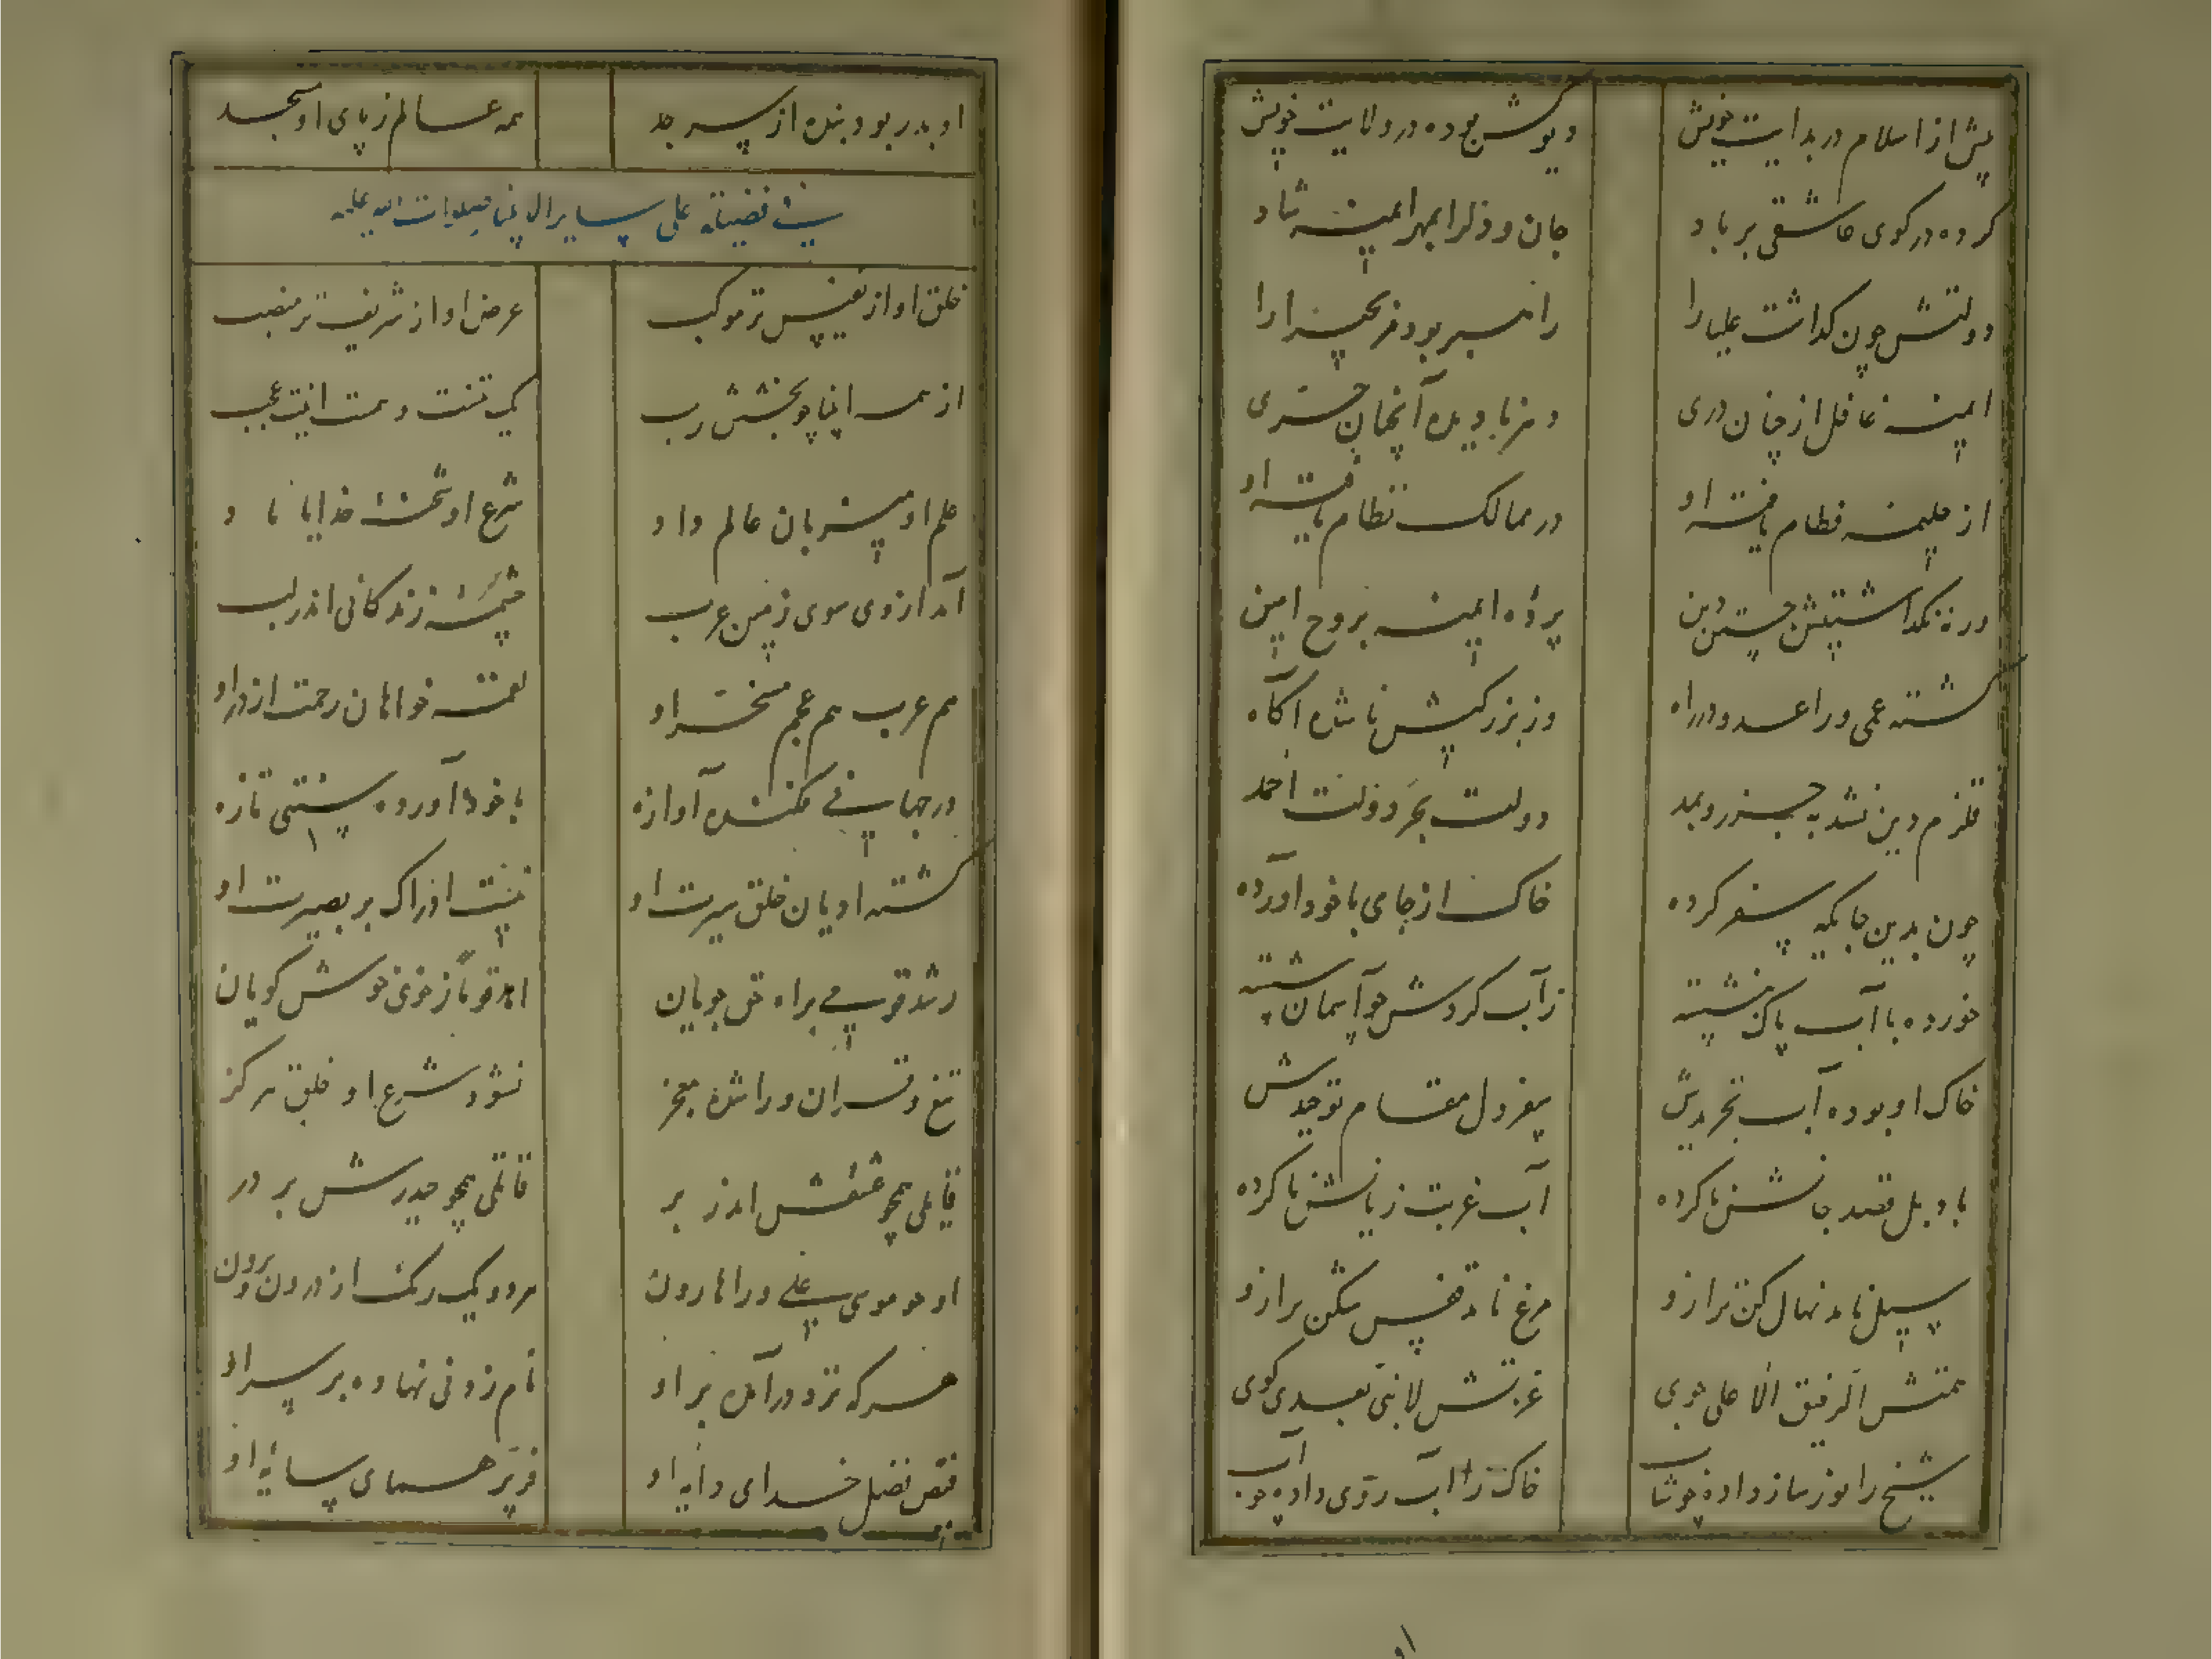 پیش از اسلام در بدایت خویش دیوش بوده در ولایت خویش
کرده در کوی عاشقی برباد جان و دل را بمهر ایمن شاد
دولتش چون کذاشت علیا را
ایمن غافل از چنان دری و نیز نادیده آنچنان حری
از حلیمه فطام یافته او در ممالک نظام یافته او
ورنه نکذاشتیش جستن دین پرده ایمنه بروح امین
کشته عمی ورا عدو در راه وز بزرکیش ناشده آکاه
قلزم دین نشد به جزر و بمد دولت بحر دولت احمد
چون بدین جایکه سفر کرده خاک از جای با خود آورده
خورده با آب پاک زآب کردش چو آسمان شسته
خاک او بوده آب تجریدش سفر دل مقام توحیدش
باد بل قصد جانش نا کرده آب غربت زیانش نا کرده
سیل نامد نهال کن تر ازو مرغ نامد قفس شکن تر ازو
همتش الرفیق الاعلی جوی غربتش لا نبی بعدی کوی
شیخ را نور ساز داده چو شاب خاک را آب روی داده چو آب
او
او بدر بود بنده از سر جد همه عالم ز پای او بجد
فی فضیلته علی سایر الانبیا صلوات الله علیه
خلق او از نفیس تر موکب عرض او از شریف تر منصب
از همه انبیا چو بخشش رب یک تنست و همت اینت عجب
علم او میزبان عالم داد شرع او شحنه خدایا داد
آمد از وی سوی زمین عرب چشمه زندکانی اندر لب
هم عرب هم عجم مسخر او لقمه خواهان رحمت از در او
در جهانی فکنده آوازه با خود آورده سنتی تازه
کشته ادیان خلق سیرت او نیست ادراک بر بصیرت او
رشد قومی براه حق جویان اهد قومی از خوی خوش کویان
تیغ و قران ورا شده معجز نشود شرع او خلق هرکز
قایلی همچو عشقش اندر بر قاتلی همچو حیدرش بر در
او چو موسی علی ورا هارون هر دو یک رنک از درون و برون
هر که نزد در آمده بر او نام زونی نهاده بر سر او
فیض فضل خدای دایه او فر پر همای سایه او